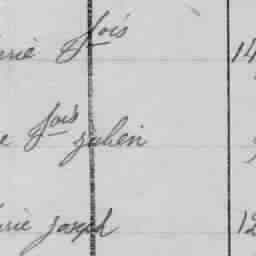 rie fois 14
e fois julien
rie joseph 12